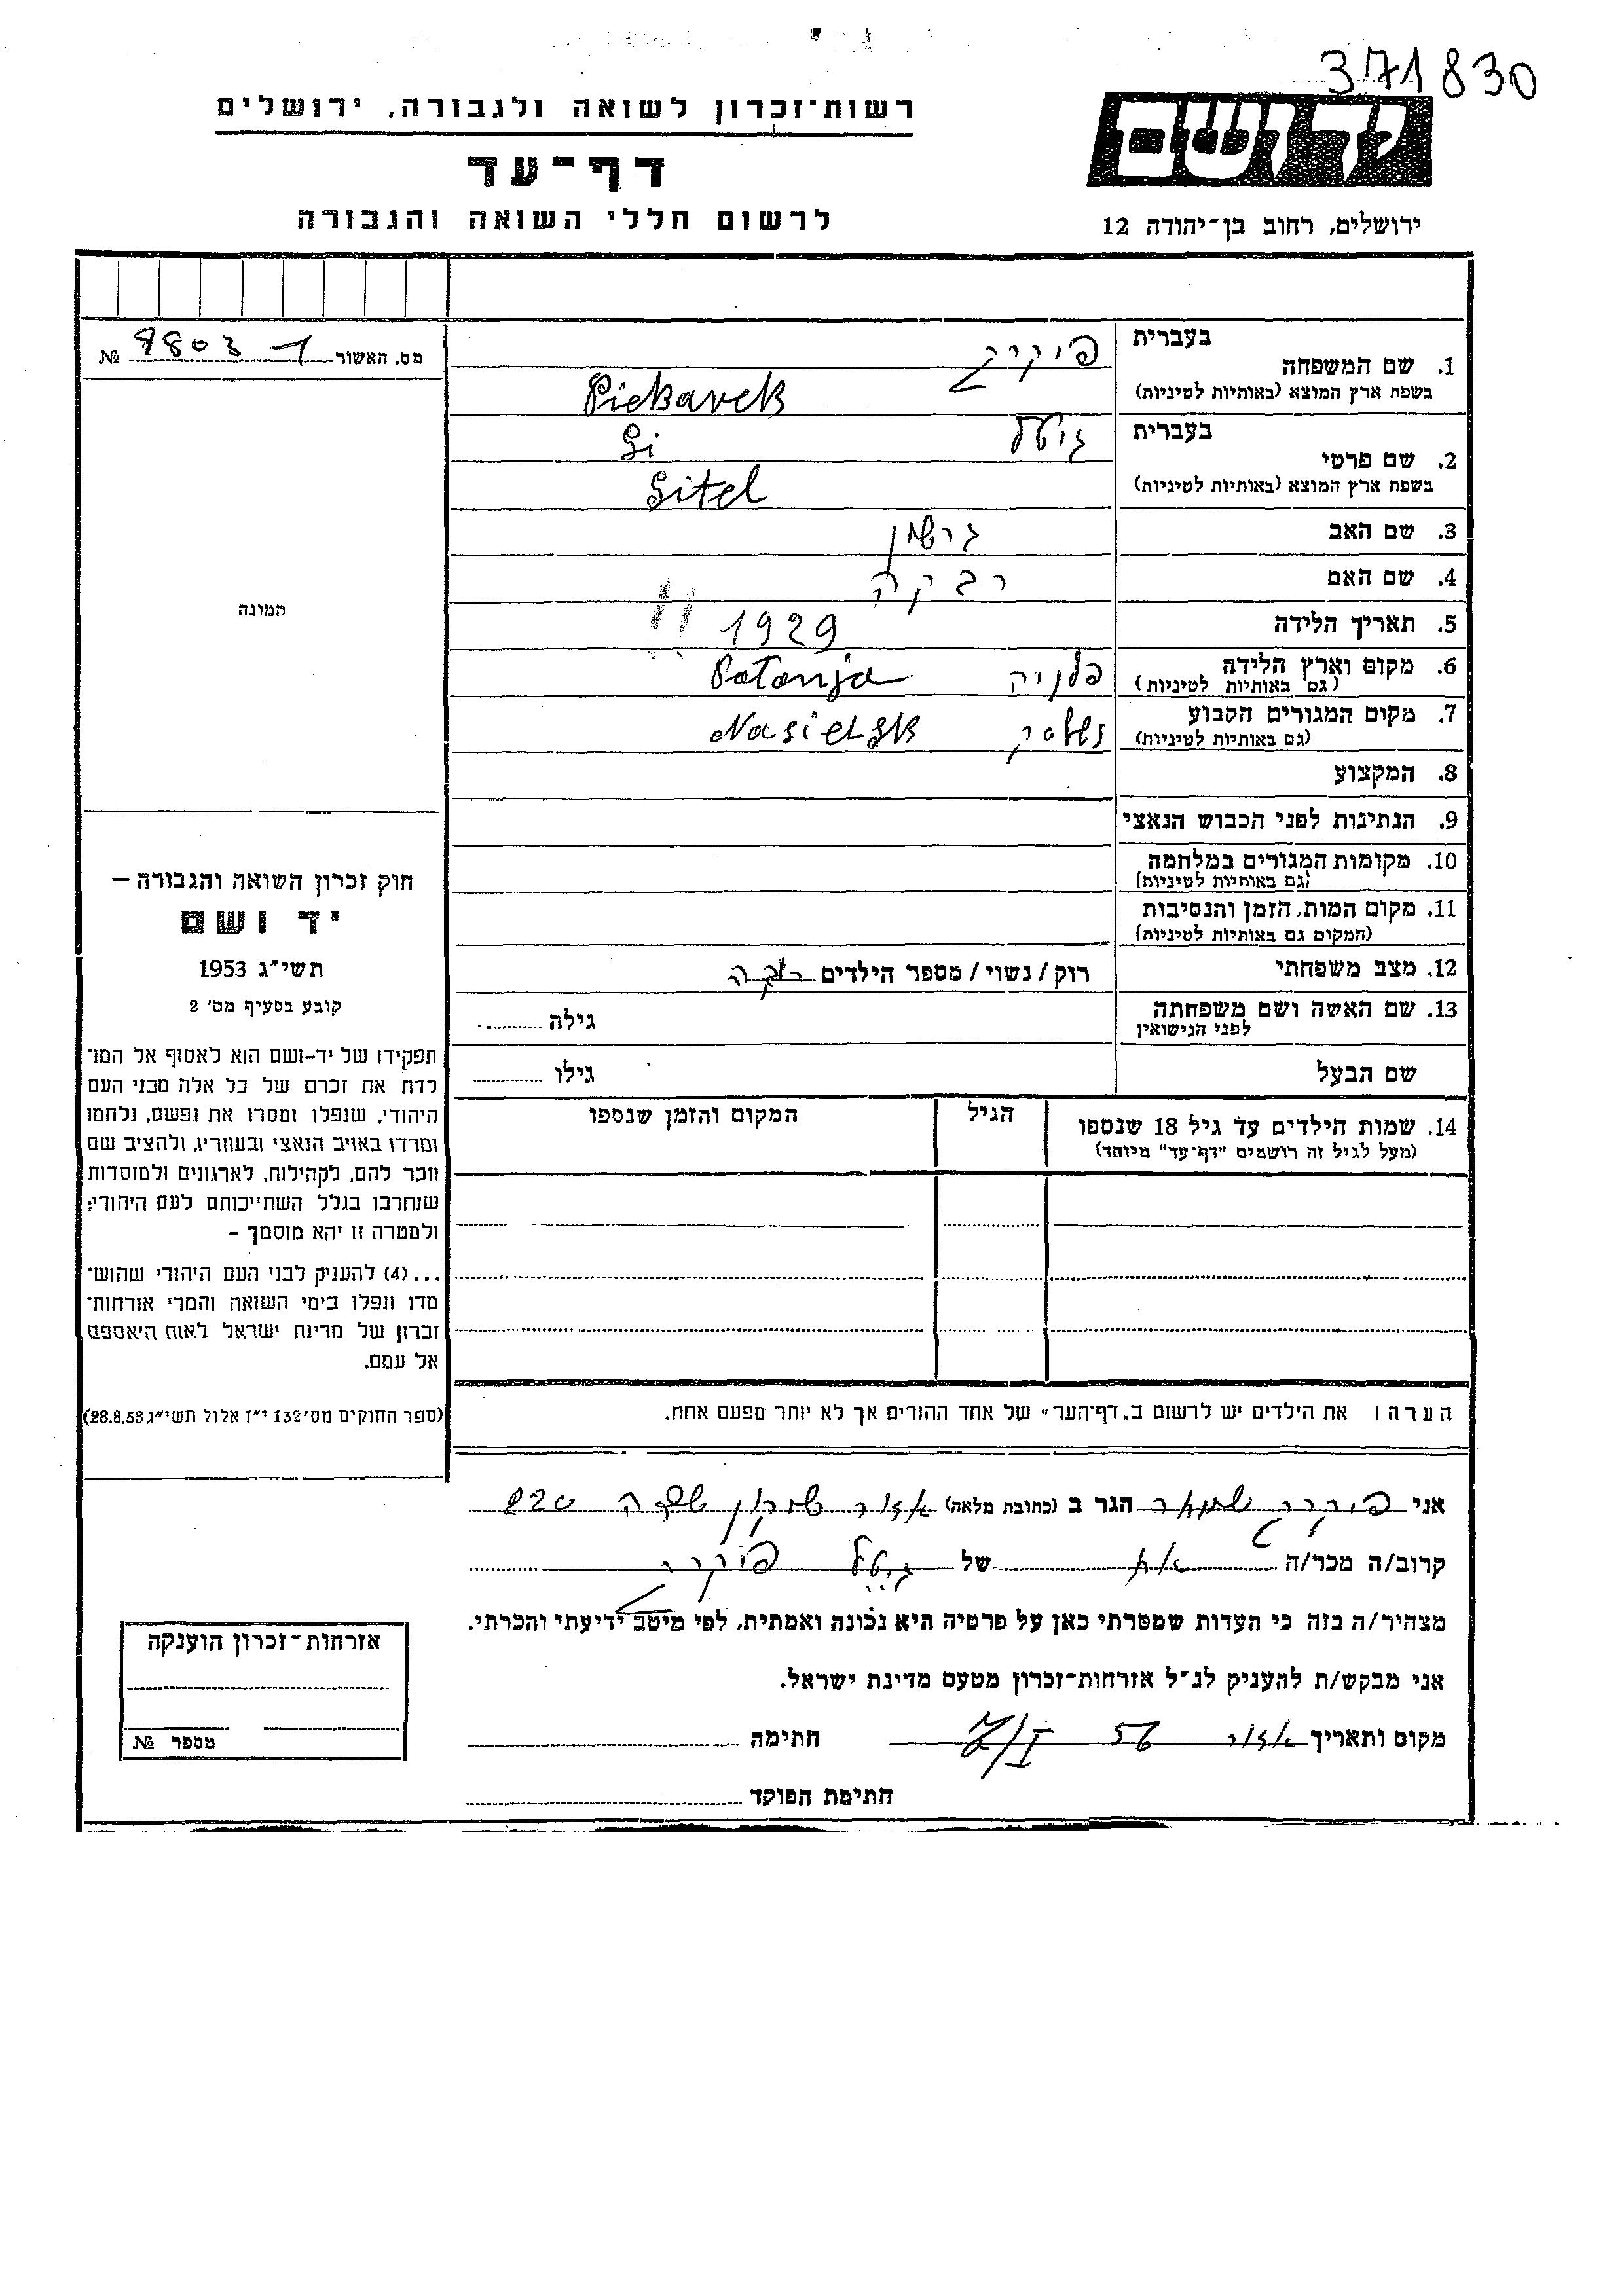 371830
רשות־זכרון לשואה ולגבורה, ירושלים
ידושם
דף־עד
לרשום חללי השואה והגבורה
ירושלים, רחוב בן־יהודה 12
מס. האשור № 7803 1
בעברית
1. שם המשפחה
בשפת ארץ המוצא (באותיות לטיניות)
Piekarek
בעברית גיטל Gi
2. שם פרטי
בשפת ארץ המוצא (באותיות לטיניות) Gitel
3. שם האב גרשון
4. שם האם רבקה
5. תאריך הלידה 1929
6. מקום וארץ הלידה
(גם באותיות לטיניות) פלניה Polonja
7. מקום המגורים הקבוע
(גם באותיות לטיניות) Nasielsk
8. המקצוע
9. הנתינות לפני הכבוש הנאצי
10. מקומות המגורים במלחמה
(גם באותיות לטיניות)
11. מקום המות, הזמן והנסיבות
(המקום גם באותיות לטיניות)
12. מצב משפחתי רוק / נשוי / מספר הילדים
13. שם האשה ושם משפחתה
לפני הנישואין
גילה
שם הבעל גילו
14. שמות הילדים עד גיל 18 שנספו
(מעל לגיל זה רושמים "דף־עד" מיוחד)
הגיל
המקום והזמן שנספו
הערה: את הילדים יש לרשום ב„דף־העד" של אחד ההורים אך לא יותר מפעם אחת.
תמונה
חוק זכרון השואה והגבורה —
יד ושם
תשי"ג 1953
קובע בסעיף מס' 2
תפקידו של יד-ושם הוא לאסוף אל המו־
לדת את זכרם של כל אלה מבני העם
היהודי, שנפלו ומסרו את נפשם, נלחמו
ומרדו באויב הנאצי ובעוזריו, ולהציב שם
וזכר להם, לקהילות, לארגונים ולמוסדות
שנחרבו בגלל השתייכותם לעם היהודי;
ולמטרה זו יהא מוסמך —
...(4) להעניק לבני העם היהודי שהוש־
מדו ונפלו בימי השואה והמרי אזרחות־
זכרון של מדינת ישראל לאות היאספם
אל עמם.
(ספר החוקים מס' 132 י"ז אלול תשי"ג 28.8.53)
אני הגר ב (כתובת מלאה)
קרוב/ה מכר/ה של גיטל
מצהיר/ה בזה כי העדות שמסרתי כאן על פרטיה היא נכונה ואמתית, לפי מיטב ידיעתי והכרתי.
אני מבקש/ת להעניק לנ"ל אזרחות־זכרון מטעם מדינת ישראל.
מקום ותאריך 56 7/I חתימה
חתימת הפוקד
אזרחות־זכרון הוענקה
מספר №